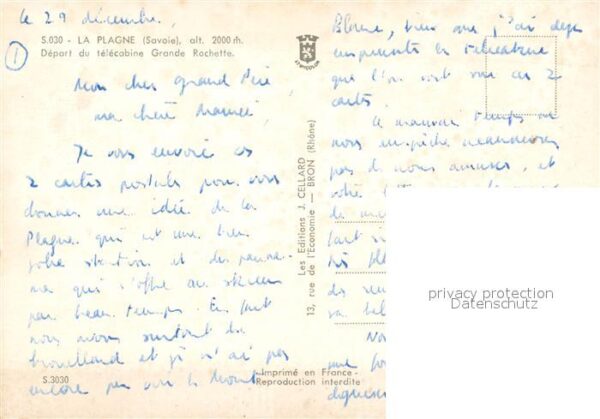 le 29 décembre,
S.030 - LA PLAGNE (Savoie), alt. 2000 m.
Départ du télécabine Grande Rochette.
1
Mon cher Grand Père
ma chère Mamée,
Je vous envoie ces
2 cartes postales pour vous
donner une idée de la
Plagne qui est une très
jolie station et du panora-
ma qui s'offre au skieur
par beau temps. En fait
nous avons surtout du
brouillard et je n'ai pas
encore pu voir le Mont
S.3030
Imprimé en France
Reproduction interdite
Les Editions J. CELLARD
13, rue de l'Economie — BRON (Rhône)
Blanc, bien que j'ai déjà
emprunté la télécabine
que l'on voit sur ces 2
cartes.
Le mauvais temps ne
nous empêche néanmoins
pas de nous amuser, et
notre
de
fait
des
Nous
que
privacy protection
Datenschutz